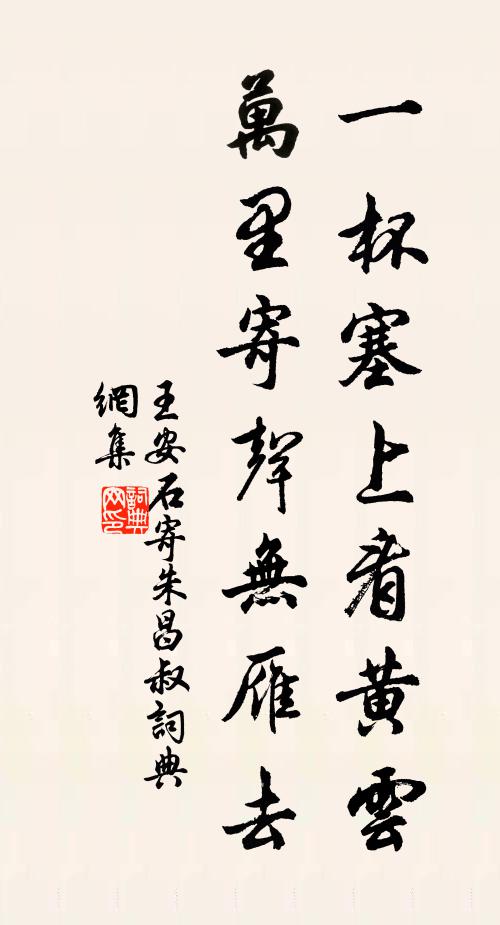 一杯塞上看黃雲
萬里寄聲無雁去
王安石寄朱昌叔詞典
網集
詞典網印